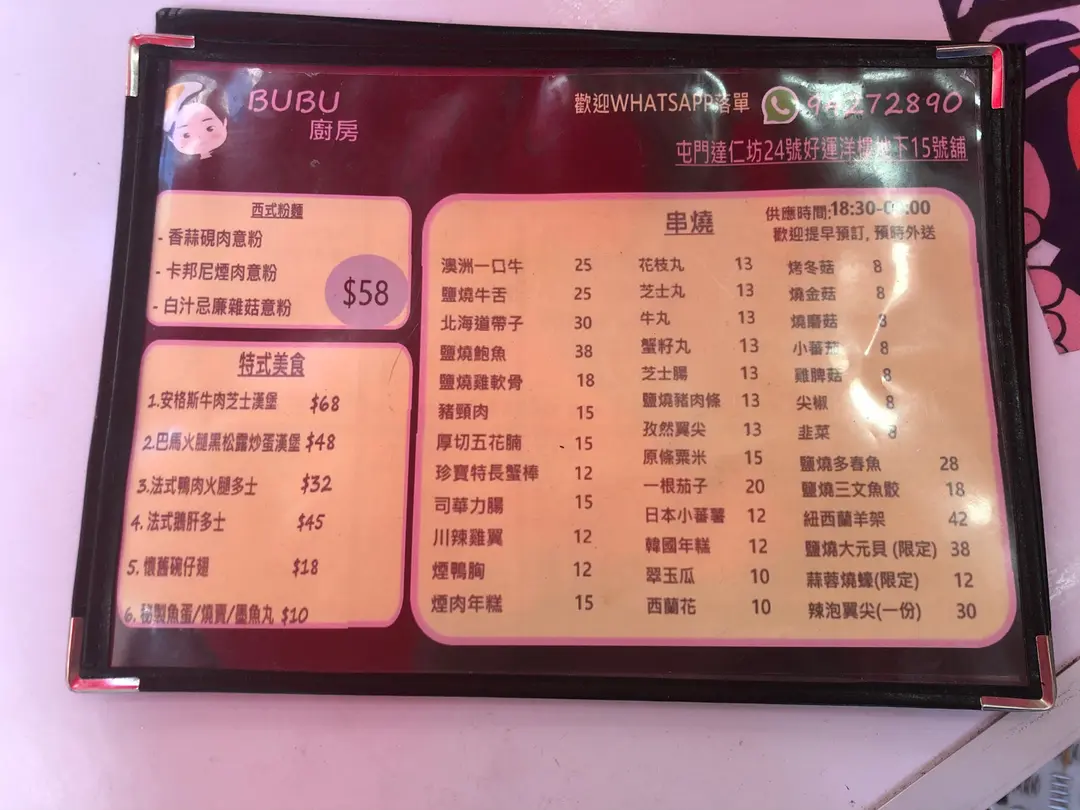 BUBU
廚房
歡迎WHATSAPP落單
屯門達仁坊24號好運洋樓地下15號舖
西式粉麵
- 香蒜硯肉意粉
- 卡邦尼煙肉意粉
- 白汁忌廉雜菇意粉
$58
特式美食
1.安格斯牛肉芝士漢堡 $68
2.巴馬火腿黑松露炒蛋漢堡 $48
3.法式鴨肉火腿多士 $32
4.法式鵝肝多士 $45
5.懷舊碗仔翅 $18
6.秘製魚蛋/燒賣/墨魚丸 $10
串燒
供應時間:18:30-
歡迎提早預訂, 預時外送
澳洲一口牛 25
鹽燒牛舌 25
北海道帶子 30
鹽燒鮑魚 38
鹽燒雞軟骨 18
豬頸肉 15
厚切五花腩 15
珍寶特長蟹棒 12
司華力腸 15
川辣雞翼 12
煙鴨胸 12
煙肉年糕 15
花枝丸 13
芝士丸 13
牛丸 13
蟹籽丸 13
芝士腸 13
鹽燒豬肉條 13
孜然翼尖 13
原條粟米 15
一根茄子 20
日本小蕃薯 12
韓國年糕 12
翠玉瓜 10
西蘭花 10
烤冬菇 8
燒金菇 8
燒磨菇 8
小蕃茄 8
雞脾菇 8
尖椒 8
韭菜 8
鹽燒多春魚 28
鹽燒三文魚骹 18
紐西蘭羊架 42
鹽燒大元貝 (限定) 38
蒜蓉燒蠔(限定) 12
辣泡翼尖(一份) 30